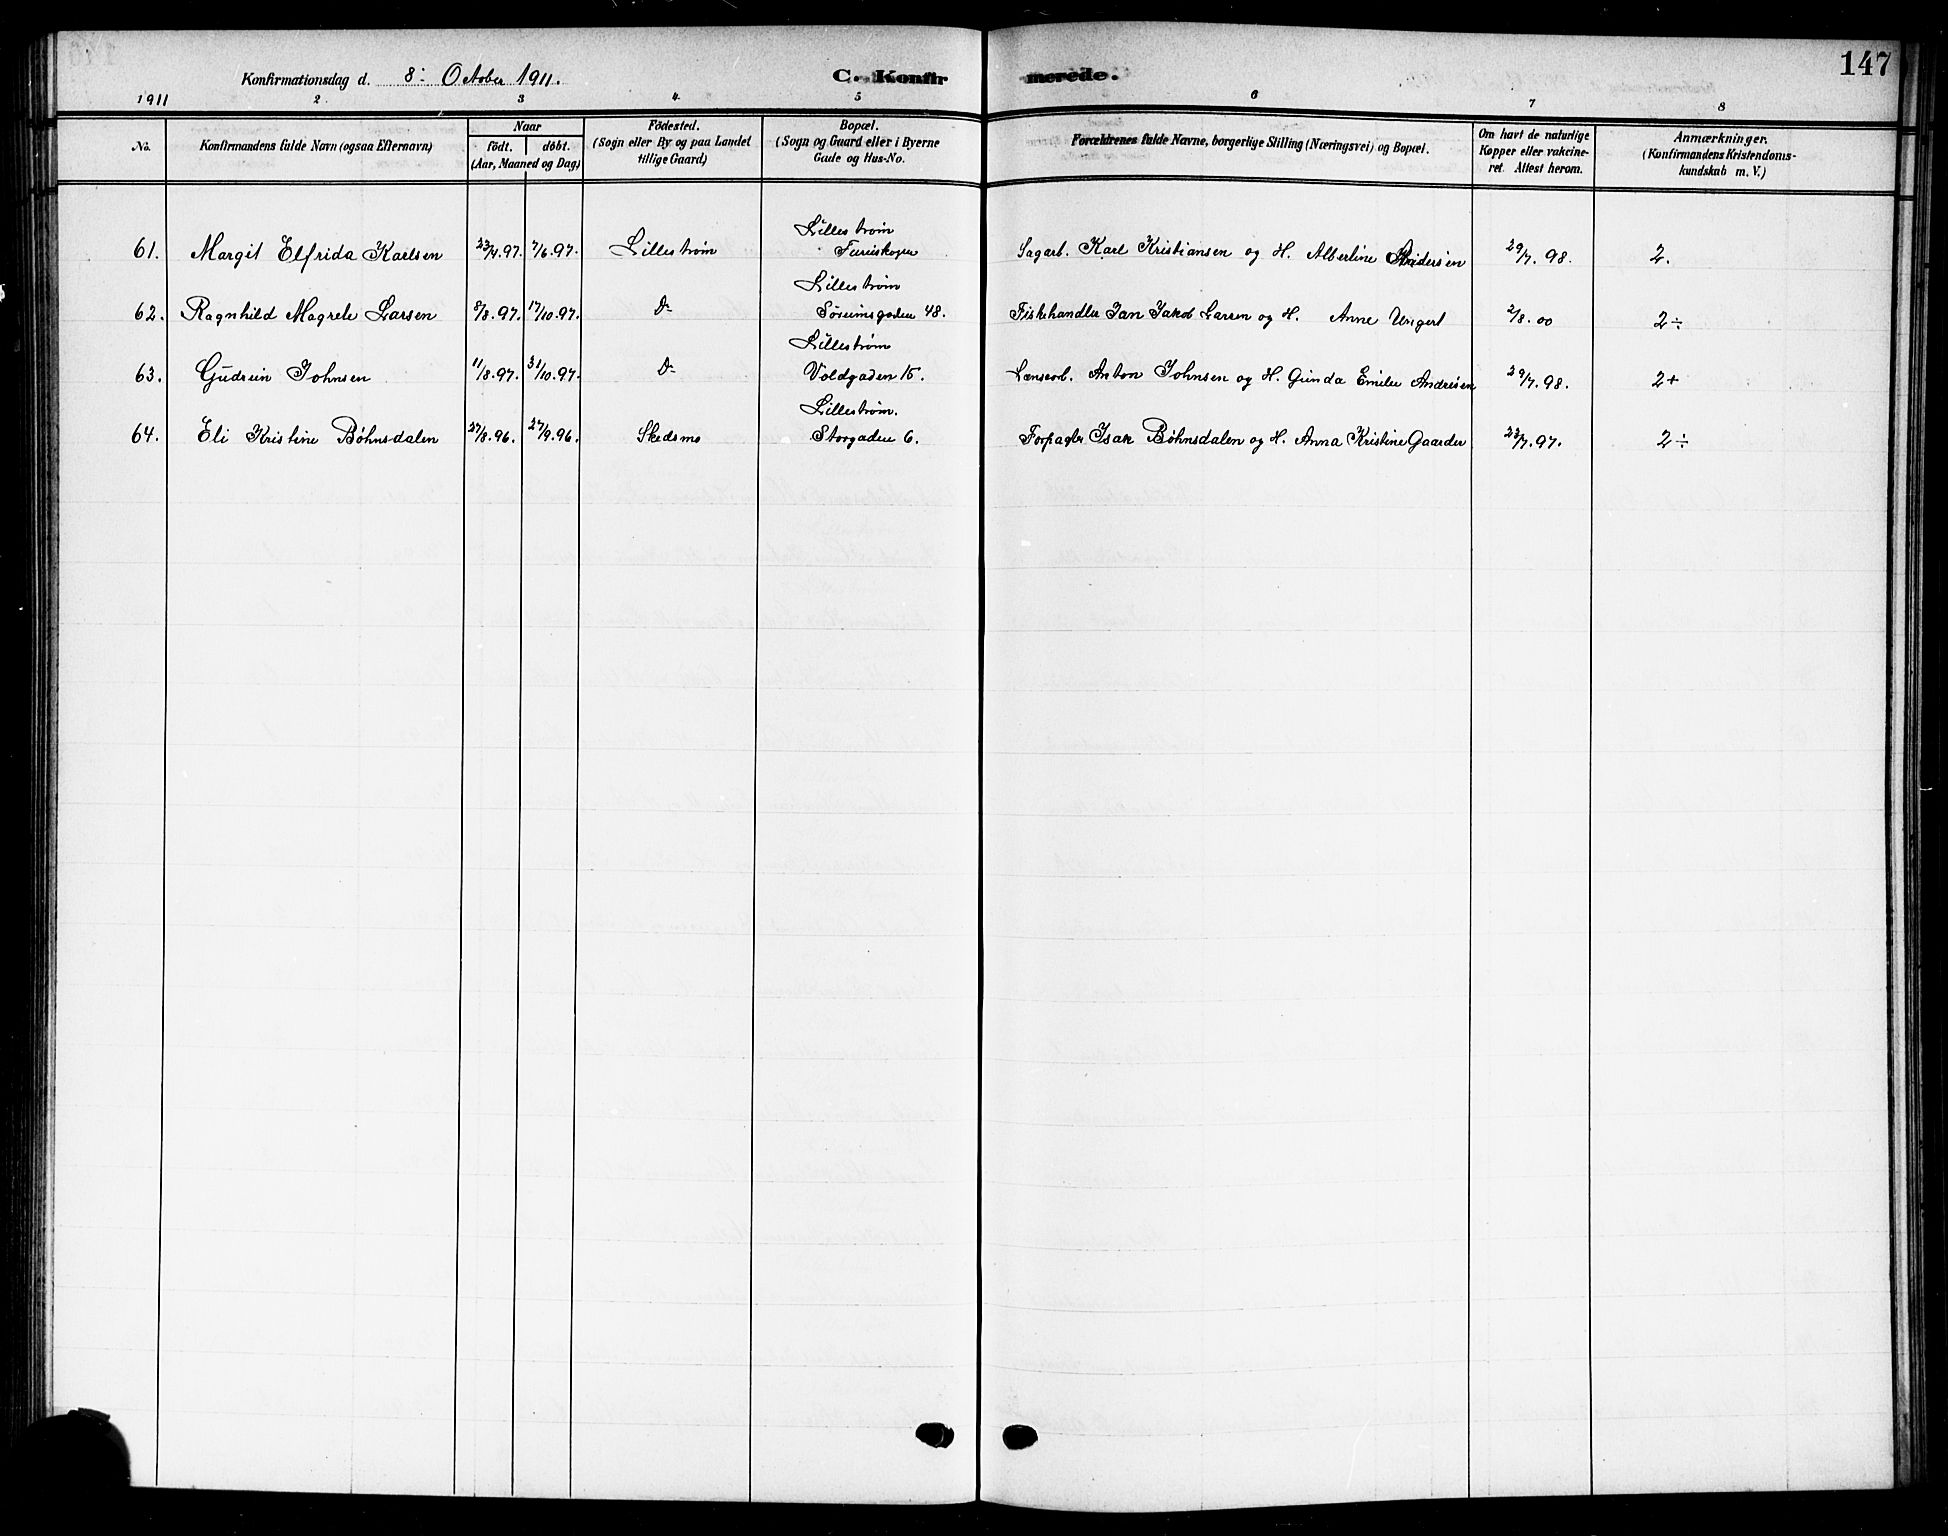 147
Konfirmationsdag d. 8: October 1911.
C. Konfirmerede.
1911 2 3 4 5 6 7 8
No.
Konfirmandens fulde Navn (ogsaa Efternavn)
Naar
født. døbt.
(Aar, Maaned og Dag)
Fødested.
(Sogn eller By og paa Landet
tillige Gaard)
Bopæl.
(Sogn og Gaard eller i Byerne
Gade og Hus-No.
Forældrenes fulde Navne, borgerlige Stilling (Næringsvei) og Bopæl.
Om havt de naturlige
Kopper eller vakcine-
ret. Attest herom.
Anmærkninger.
(Konfirmandens Kristendoms-
kundskab m. V.)
Lillestrøm
61. Margit Elfrida Karlsen 23/4.97. 7/6.97. Lillestrøm Furuskogen Sagarb. Karl Kristiansen og H. Albertine Andersen 29/7.98. 2.
Lillestrøm
62. Ragnhild Magrete Larsen 8/8.97. 17/10.97. Do Sørumsgaden 48. Fiskehandler Jan Jakob Larsen og H. Anne Ungert 2/8.00 2÷
Lillestrøm
63. Gudrun Johnsen 11/8.97. 31/10.97. Do Voldgaden 15. Lensearb. Anton Johnsen og H. Gunda Emilie Andresen 29/7.98. 2+
Lillestrøm.
64. Eli Kristine Bøhnsdalen 27/8.96. 27/9.96. Skedsmo Storgaden 6. Forpagter Isak Bøhnsdalen og H. Anna Kristine Gaarder 23/7.97. 2÷